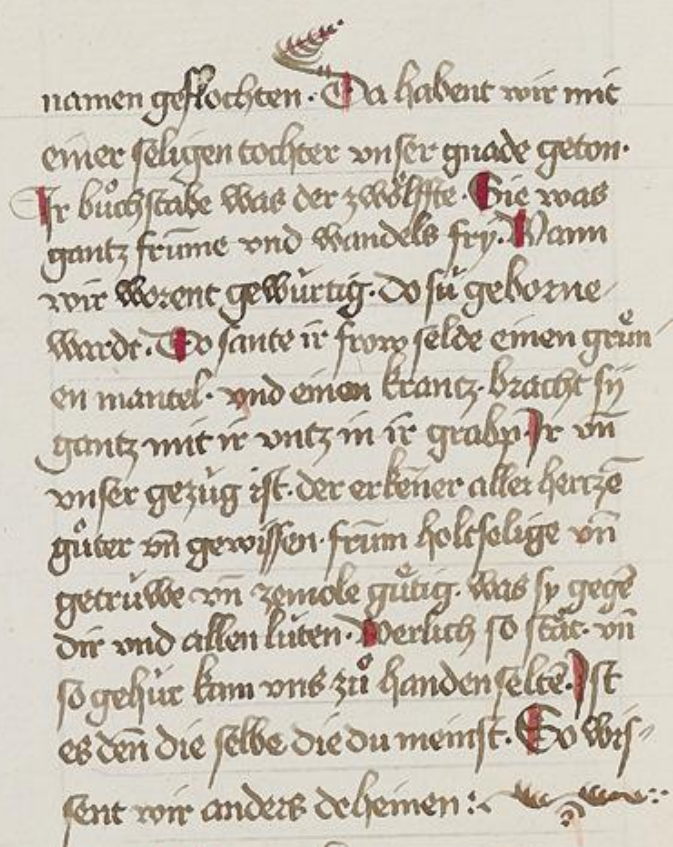 namen geflochten · Da habent wir mit
einer seligen tochter vnser gnade geton ·
Ir bůchstabe was der zwoͤlffte · Sie was
gantz frūme vnd wandels fry · Wann
wir worent gewürtig · do sü geborne
wardt · Do sante ir frow selde einen gruͤn
en mantel · vnd einen krantz · bracht sy
gantz mit ir vntz in ir grabp Ir vn̄
vnser gezüg ist · der erkēner aller hertzē
guͤter vn̄ gewissen · frūm holtselige vn̄
getrüwe vn̄ zemole guͤtig · was sy gegē
dir vnd allen lüten · Werlich so staͤt · vn̄
so gehür kam vns zů handen seltē · Ist
es den̄ die selbe die du meinst · So wis⸗
sent wir anders deheinen :